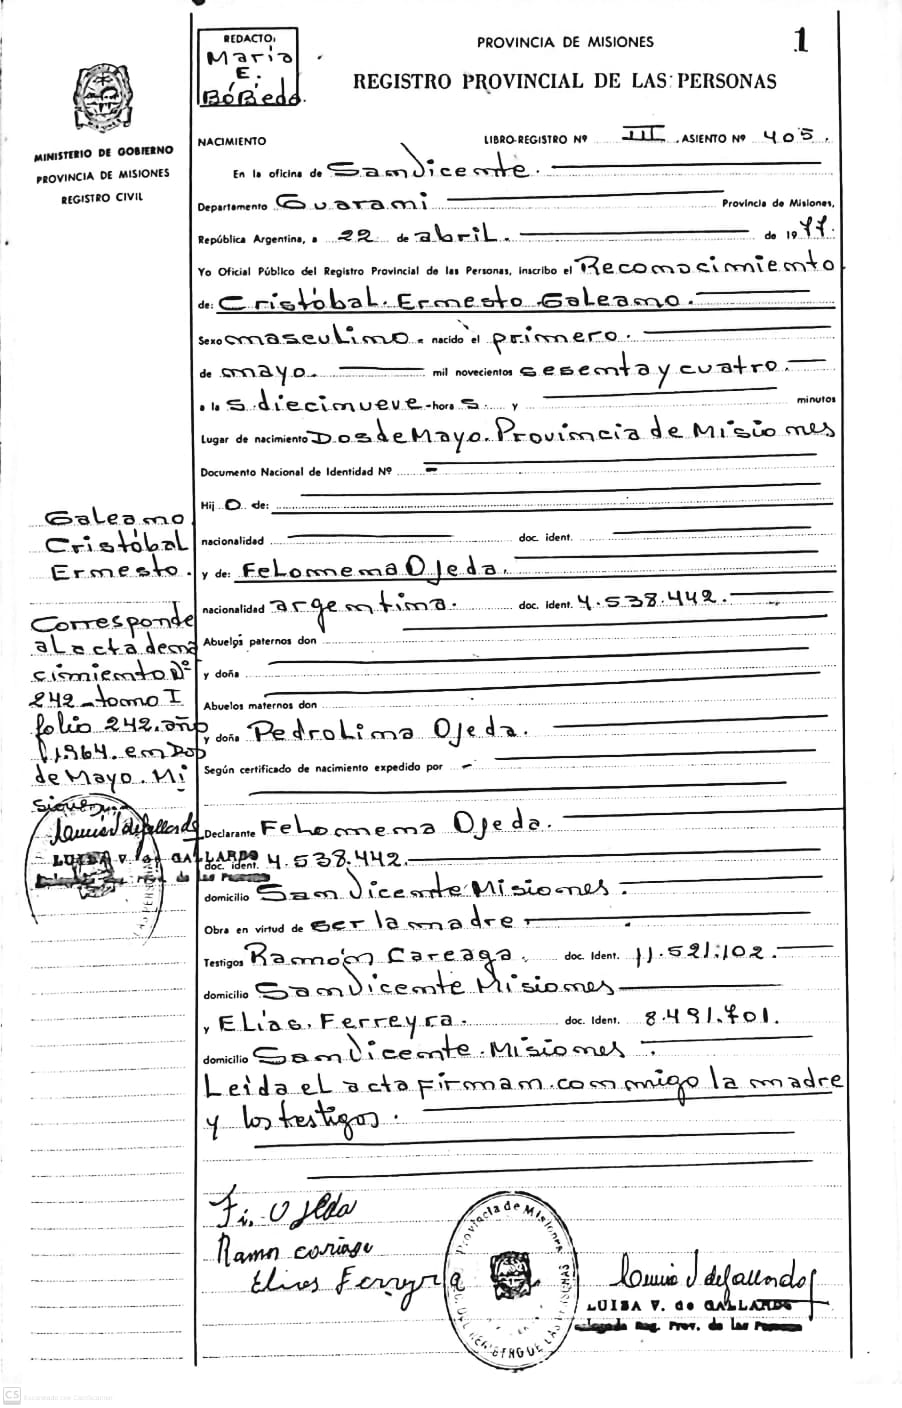 REDACTO:
Maria
E.
BóBeda.
PROVINCIA DE MISIONES
1
REGISTRO PROVINCIAL DE LAS PERSONAS
MINISTERIO DE GOBIERNO
PROVINCIA DE MISIONES
REGISTRO CIVIL
NACIMIENTO LIBRO-REGISTRO Nº III. ASIENTO Nº 405.
En la oficina de San Vicente.
Departamento Guarani Provincia de Misiones,
República Argentina, a 22 de abril. de 1977.
Yo Oficial Público del Registro Provincial de las Personas, inscribo el Reconocimiento
de: Cristóbal. Ernesto. Galeano.
Sexo masculino. nacido el primero.
de mayo. mil novecientos sesenta y cuatro.
a las diecinueve - horas. y minutos
Lugar de nacimiento Dos de Mayo. Provincia de Misiones
Documento Nacional de Identidad Nº -
Hijo de:
nacionalidad doc. ident.
y de: Felomena Ojeda.
nacionalidad argentina. doc. ident. 4.538.442.
Abuelos paternos don
y doña
Abuelos maternos don
y doña Pedrolina Ojeda.
Según certificado de nacimiento expedido por -
Declarante Felomena Ojeda.
doc. ident. 4.538.442.
domicilio San Vicente Misiones.
Obra en virtud de ser la madre
Testigos Ramón Careaga. doc. ident. 11.521.102.
domicilio San Vicente Misiones
y Elías. Ferreyra. doc. ident. 8.491.701.
domicilio San Vicente. Misiones.
Leida el acta firman. conmigo la madre
y los testigos.
Galeano
Cristóbal
Ernesto.
Corresponde
al acta de na
cimiento Nº
242 - tomo I
folio 242. año
1964. en Dos
de Mayo. Mi
siones.
LUISA V. de GALLARDO
de Las Personas
F. Ojeda
Ramon cariaga
Elias Ferreyra
Provincia de Misiones
DEL REGISTRO DE LAS PERSONAS
LUISA V. de GALLARDO
Delegada Reg. Prov. de Las Personas
CS Escaneado con CamScanner